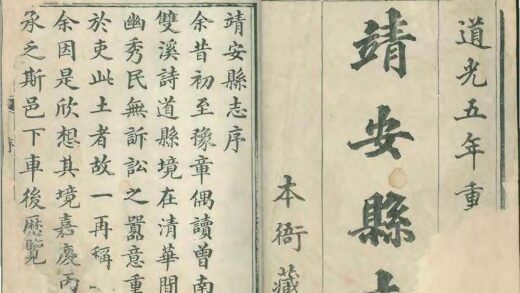 道光五年重
靖安縣
本衙藏
靖安縣志序
余昔初至豫章偶讀曾南
雙溪詩道縣境在清華間
幽秀民無訴訟之囂意重
於吏此土者故一再稱
余因是欣想其境嘉慶丙
承之斯邑下車後歷覽
序